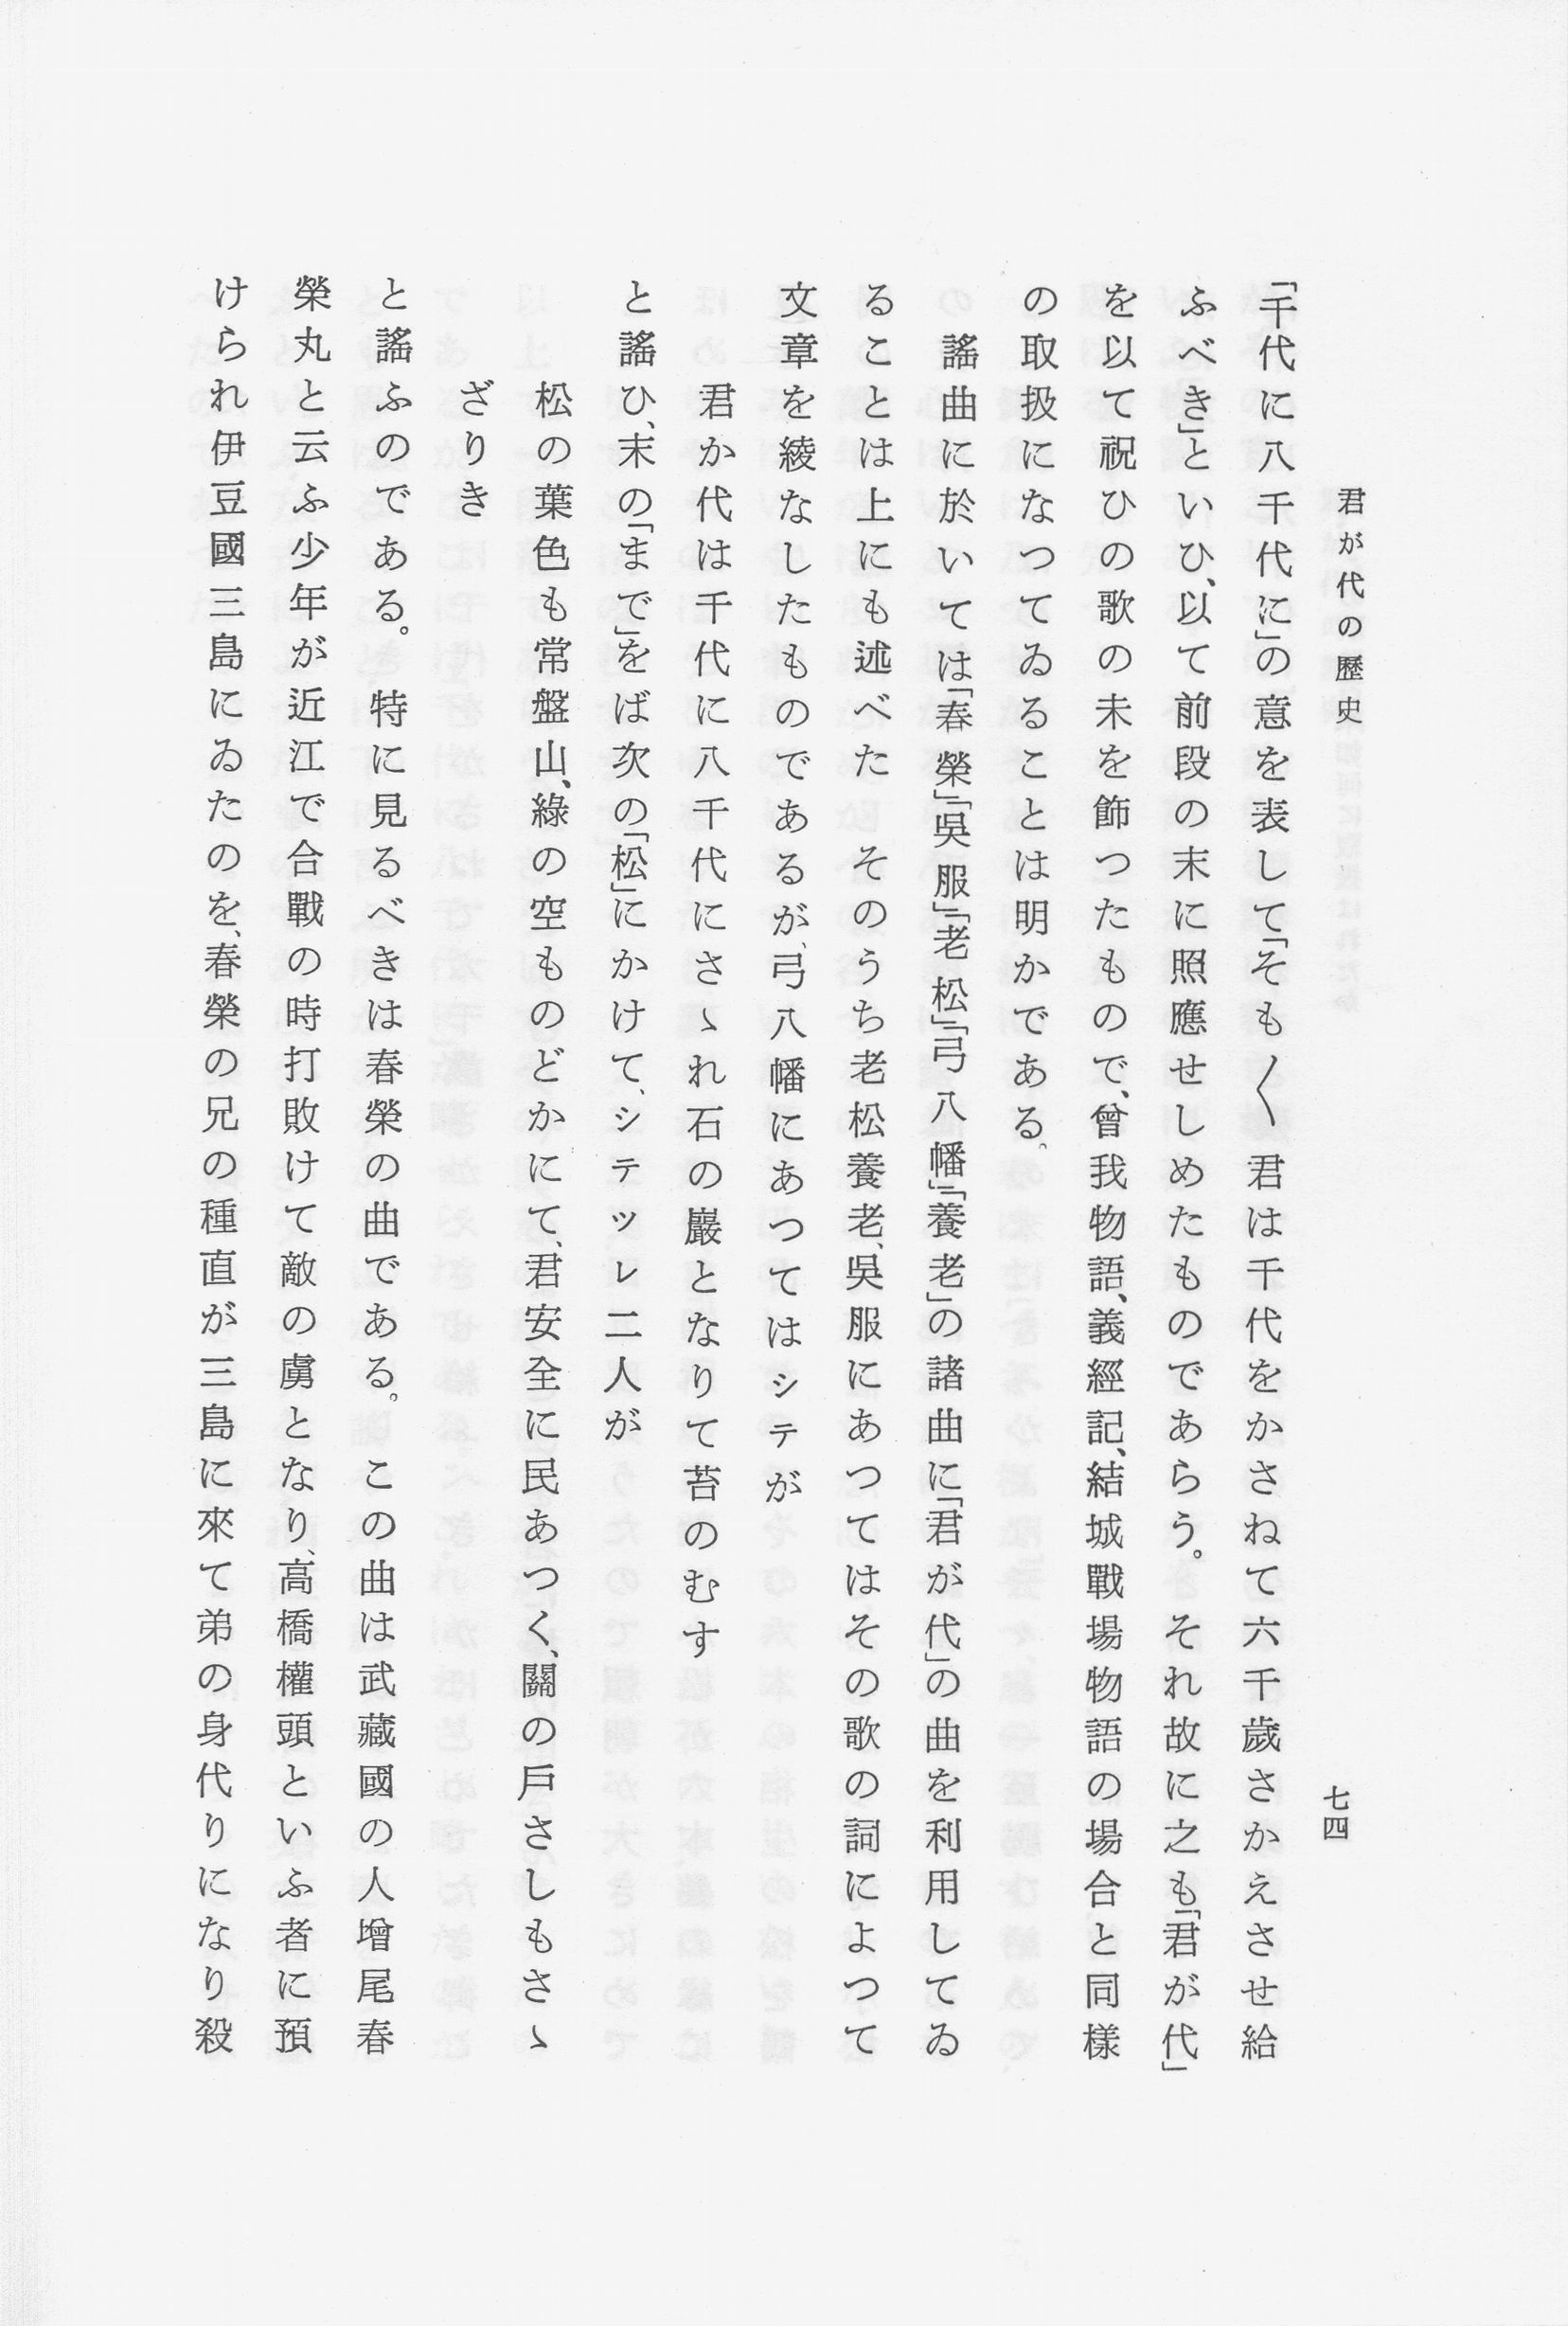 君が代の歴史
七四
「千代に八千代に」の意を表して「そも〱君は千代をかさねて六千歲さかえさせ給
ふべき」といひ、以て前段の末に照應せしめたものであらう。それ故に之も「君が代」
を以て祝ひの歌の未を飾つたもので、曾我物語、義經記、結城戰場物語の場合と同樣
の取扱になつてゐることは明かである。
謠曲に於いては「春榮」「吳服」「老松」「弓八幡」「養老」の諸曲に「君が代」の曲を利用してゐ
ることは上にも述べた　そのうち老松養老、吳服にあつてはその歌の詞によつて
文章を綾なしたものであるが、弓八幡にあつてはシテが
君か代は千代に八千代にさゝれ石の巖となりて苔のむす
と謠ひ、末の「まで」をば次の「松」にかけて、シテツレ二人が
松の葉色も常盤山、綠の空ものどかにて、君安全に民あつく、關の戶さしもさゝ
ざりき
と謠ふのである。特に見るべきは春榮の曲である。この曲は武藏國の人增尾春
榮丸と云ふ少年が近江で合戰の時打敗けて敵の虜となり、高橋權頭といふ者に預
けられ伊豆國三島にゐたのを、春榮の兄の種直が三島に來て弟の身代りになり殺